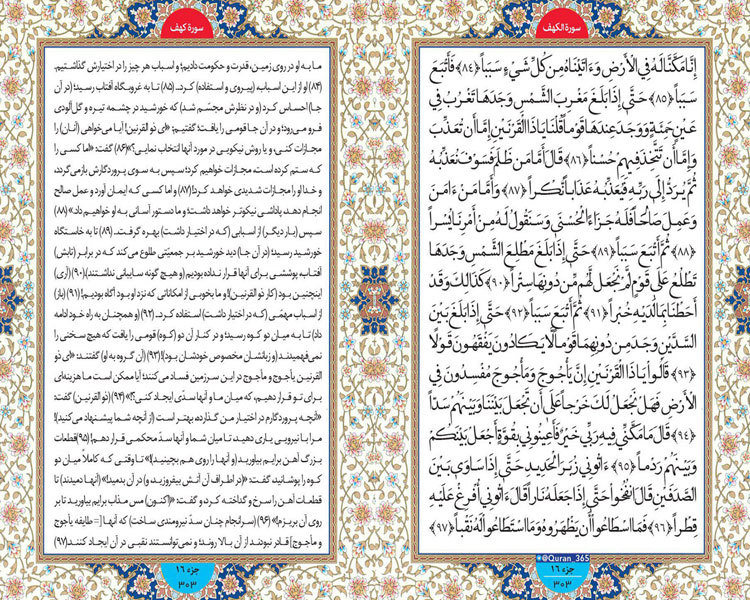 سورة الکهف
إِنَّا مَكَّنَّا لَهُ فِي الْأَرْضِ وَءَاتَيْنَاهُ مِنْ كُلِّ شَيْءٍ سَبَباً ﴿٨٤﴾ فَأَتْبَعَ
سَبَباً ﴿٨٥﴾ حَتَّىٰ إِذَا بَلَغَ مَغْرِبَ الشَّمْسِ وَجَدَهَا تَغْرُبُ فِي
عَيْنٍ حَمِئَةٍ وَوَجَدَ عِنْدَهَا قَوْماً قُلْنَا يَا ذَا الْقَرْنَيْنِ إِمَّا أَنْ تُعَذِّبَ
وَإِمَّا أَنْ تَتَّخِذَ فِيهِمْ حُسْناً ﴿٨٦﴾ قَالَ أَمَّا مَنْ ظَلَمَ فَسَوْفَ نُعَذِّبُهُ
ثُمَّ يُرَدُّ إِلَىٰ رَبِّهِ فَيُعَذِّبُهُ عَذَاباً نُكْراً ﴿٨٧﴾ وَأَمَّا مَنْ ءَامَنَ
وَعَمِلَ صَالِحاً فَلَهُ جَزَاءً الْحُسْنَىٰ وَسَنَقُولُ لَهُ مِنْ أَمْرِنَا يُسْراً
﴿٨٨﴾ ثُمَّ أَتْبَعَ سَبَباً ﴿٨٩﴾ حَتَّىٰ إِذَا بَلَغَ مَطْلِعَ الشَّمْسِ وَجَدَهَا
تَطْلُعُ عَلَىٰ قَوْمٍ لَمْ نَجْعَلْ لَهُمْ مِنْ دُونِهَا سِتْراً ﴿٩٠﴾ كَذَٰلِكَ وَقَدْ
أَحَطْنَا بِمَا لَدَيْهِ خُبْراً ﴿٩١﴾ ثُمَّ أَتْبَعَ سَبَباً ﴿٩٢﴾ حَتَّىٰ إِذَا بَلَغَ بَيْنَ
السَّدَّيْنِ وَجَدَ مِنْ دُونِهِمَا قَوْماً لَا يَكَادُونَ يَفْقَهُونَ قَوْلاً
﴿٩٣﴾ قَالُوا يَا ذَا الْقَرْنَيْنِ إِنَّ يَأْجُوجَ وَمَأْجُوجَ مُفْسِدُونَ فِي
الْأَرْضِ فَهَلْ نَجْعَلُ لَكَ خَرْجاً عَلَىٰ أَنْ تَجْعَلَ بَيْنَنَا وَبَيْنَهُمْ سَدّاً
﴿٩٤﴾ قَالَ مَا مَكَّنِّي فِيهِ رَبِّي خَيْرٌ فَأَعِينُونِي بِقُوَّةٍ أَجْعَلْ بَيْنَكُمْ
وَبَيْنَهُمْ رَدْماً ﴿٩٥﴾ ءَاتُونِي زُبَرَ الْحَدِيدِ حَتَّىٰ إِذَا سَاوَىٰ بَيْنَ
الصَّدَفَيْنِ قَالَ انْفُخُوا حَتَّىٰ إِذَا جَعَلَهُ نَاراً قَالَ ءَاتُونِي أُفْرِغْ عَلَيْهِ
قِطْراً ﴿٩٦﴾ فَمَا اسْطَاعُوا أَنْ يَظْهَرُوهُ وَمَا اسْتَطَاعُوا لَهُ نَقْباً ﴿٩٧﴾
@Quran_365
جزء ۱۶
۳۰۳
سورة کهف
ما به او در روی زمین، قدرت و حکومت دادیم؛ و اسباب هر چیز را در اختیارش گذاشتیم.
(۸۴) او از این اسباب، (پیروی و استفاده) کرد. (۸۵) تا به غروبگاه آفتاب رسید؛ (در آن
جا) احساس کرد (و در نظرش مجسّم شد) که خورشید در چشمه تیره و گل‌آلودی
فرو می‌رود؛ و در آن جا قومی را یافت؛ گفتیم: «ای ذو القرنین! آیا می‌خواهی (آنان) را
مجازات کنی، و یا روش نیکویی در مورد آنها انتخاب نمایی؟» (۸۶) گفت: «اما کسی را
که ستم کرده است، مجازات خواهیم کرد؛ سپس به سوی پروردگارش بازمی‌گردد،
و خدا او را مجازات شدیدی خواهد کرد! (۸۷) و اما کسی که ایمان آورد و عمل صالح
انجام دهد، پاداشی نیکوتر خواهد داشت؛ و ما دستور آسانی به او خواهیم داد.» (۸۸)
سپس (بار دیگر) از اسبابی (که در اختیار داشت) بهره گرفت... (۸۹) تا به خاستگاه
خورشید رسید؛ (در آن جا) دید خورشید بر جمعیّتی طلوع می‌کند که در برابر (تابش)
آفتاب، پوششی برای آنها قرار نداده بودیم (و هیچ گونه سایبانی نداشتند). (۹۰) (آری)
اینچنین بود (کار ذو القرنین)! و ما بخوبی از امکاناتی که نزد او بود آگاه بودیم! (۹۱) (باز)
از اسباب مهمّی (که در اختیار داشت) استفاده کرد... (۹۲) (و همچنان به راه خود ادامه
داد) تا به میان دو کوه رسید؛ و در کنار آن دو (کوه) قومی را یافت که هیچ سخنی را
نمی‌فهمیدند (و زبانشان مخصوص خودشان بود)! (۹۳) (آن گروه به او) گفتند: «ای ذو
القرنین یأجوج و مأجوج در این سرزمین فساد می‌کنند؛ آیا ممکن است ما هزینه‌ای
برای تو قرار دهیم، که میان ما و آنها سدّی ایجاد کنی؟!» (۹۴) (ذو القرنین) گفت:
«آنچه پروردگارم در اختیار من گذارده، بهتر است (از آنچه شما پیشنهاد می‌کنید)!
مرا با نیرویی یاری دهید، تا میان شما و آنها سدّ محکمی قرار دهم! (۹۵) قطعات
بزرگ آهن برایم بیاورید (و آنها را روی هم بچینید)!» تا وقتی که کاملاً میان دو
کوه را پوشانید، گفت: «(در اطراف آن آتش بیفروزید، و) در آن بدمید!» (آنها دمیدند) تا
قطعات آهن را سرخ و گداخته کرد، و گفت: «(اکنون) مس مذاب برایم بیاورید تا بر
روی آن بریزم!» (۹۶) (سرانجام چنان سدّ نیرومندی ساخت) که آنها [= طایفه یأجوج
و مأجوج] قادر نبودند از آن بالا روند؛ و نمی‌توانستند نقبی در آن ایجاد کنند. (۹۷)
جزء ۱۶
۳۰۳